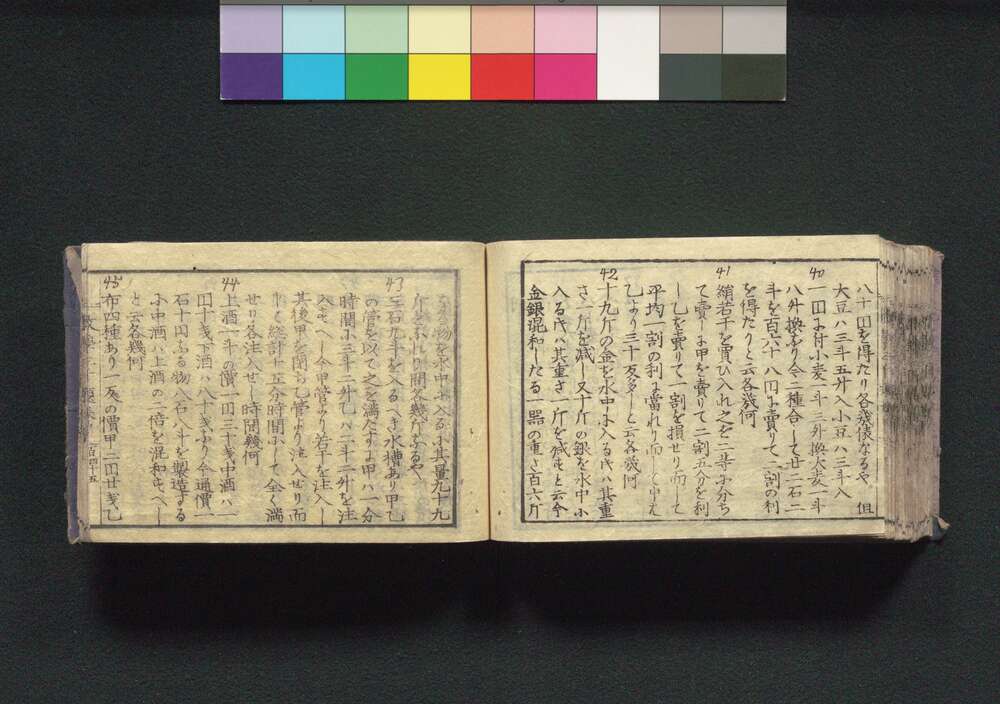 八十円を得たり各幾俵なるや 但
大豆ハ三斗五升入小豆ハ三斗入
40
一円に付小麦一斗三升換大麦一斗
八升換なり今二種合して廿二石二
斗を百六十八円に賣りて二割の利
を得たりと云各幾何
41
絹若干を買ひ入れ之を二等に分ち
て賣しに甲を賣りて二割五分を利
し乙を賣りて一割を損せり而して
平均一割の利に當れり而して甲ハ
乙より三十反多しと云各幾何
42
十九斤の金を水中に入る時ハ其重
さ一斤を減し又十斤の銀を水中に
入る時ハ其重さ一斤を減すと云今
金銀混和したる一器の重さ百六斤
なる物を水中に入るに其量九十九
斤となれり問各幾斤なるや
43
三石九斗を入るへき水槽あり甲乙
の管を以て之を満たすに甲ハ一分
時間に三斗二升乙ハ二斗二升を注
入すへし今甲管より若干を注入し
其後甲を閉ち乙管より注入せり而
して総計十五分時間にして全く満
せり各注入せし時間幾何
44
上酒一斗の價一円三十銭中酒ハ一
円十銭下酒ハ八十銭なり今通價一
石十円なる物八石八斗を製造する
に中酒ハ上酒の一倍を混和すへし
と云各幾何
45
布四種あり一反の價甲二円廿銭乙
百四十五